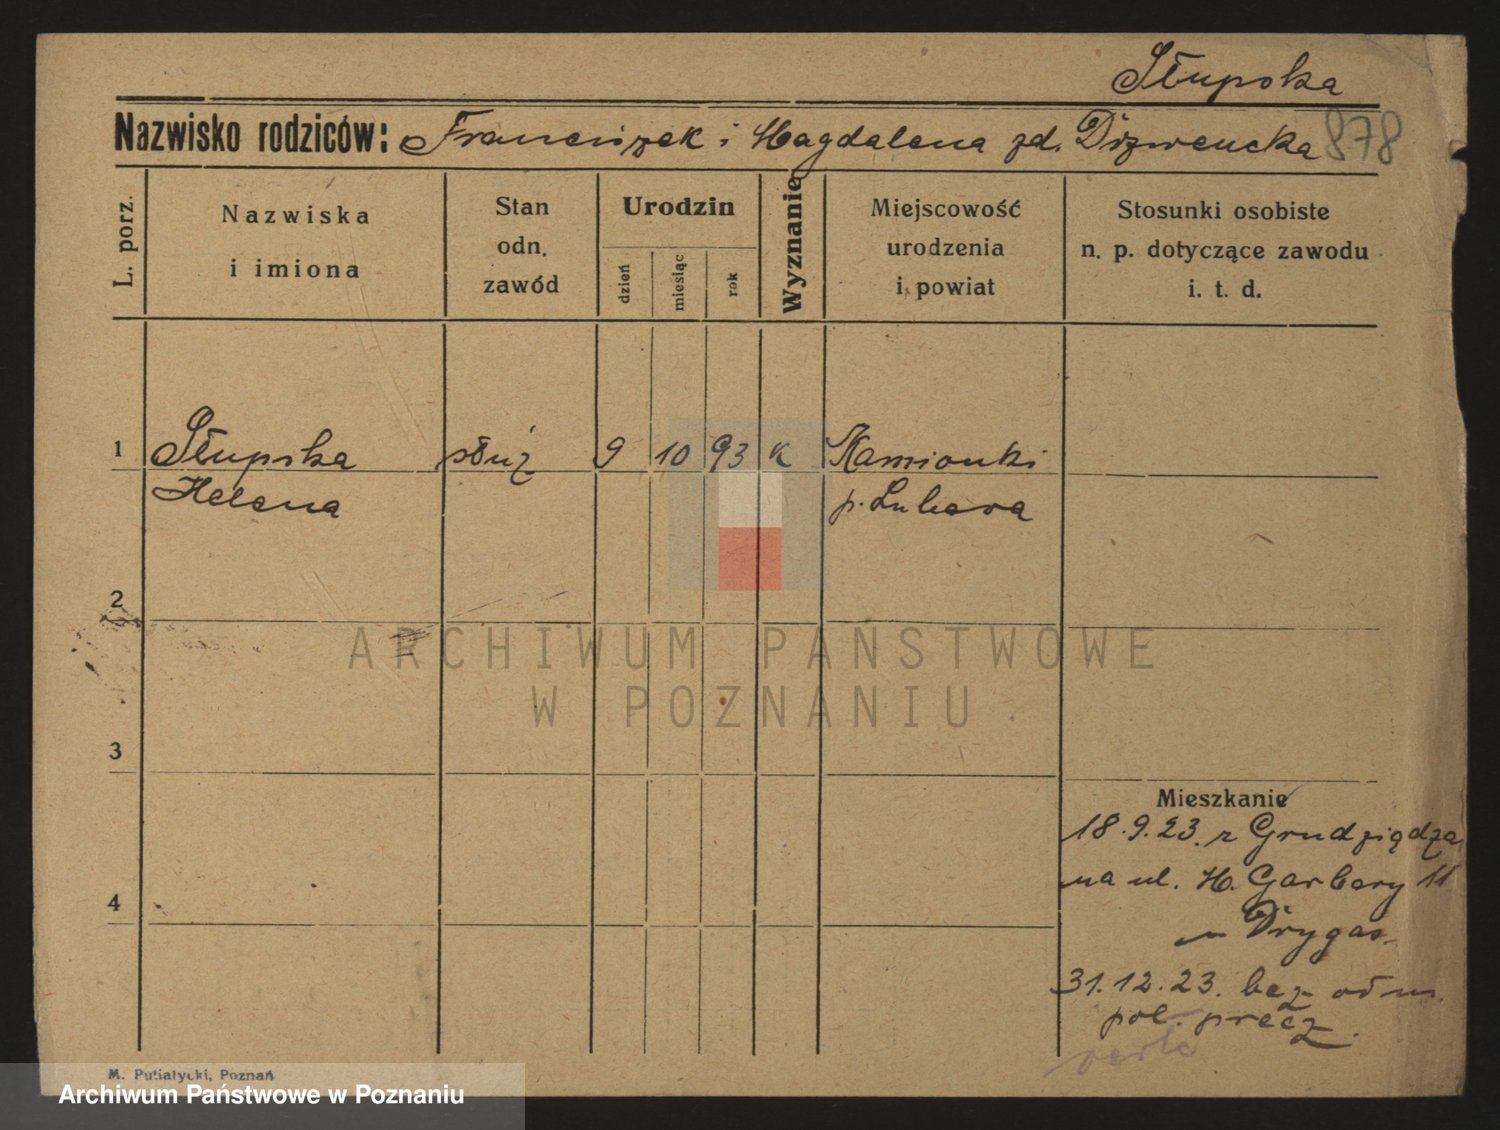 Słupska
Nazwisko rodziców: Franciszek i Magdalena zd. 878
L. porz.
Nazwiska
i imiona
Stan
odn.
zawód
Urodzin
dzień
miesiąc
rok
Wyznanie
Miejscowość
urodzenia
i powiat
Stosunki osobiste
n. p. dotyczące zawodu
i. t. d.
1 Słupska służ 9 10 93 k Kamionki
Helena p.
2
3
4
Mieszkanie
18.9.23. z Grudziądza
na ul. W. Garbary 11
u Drygas
31.12.23. bez odm.
pol. precz.
verte
M. Putiatycki, Poznań
ARCHIWUM PAŃSTWOWE
W POZNANIU
Archiwum Państwowe w Poznaniu